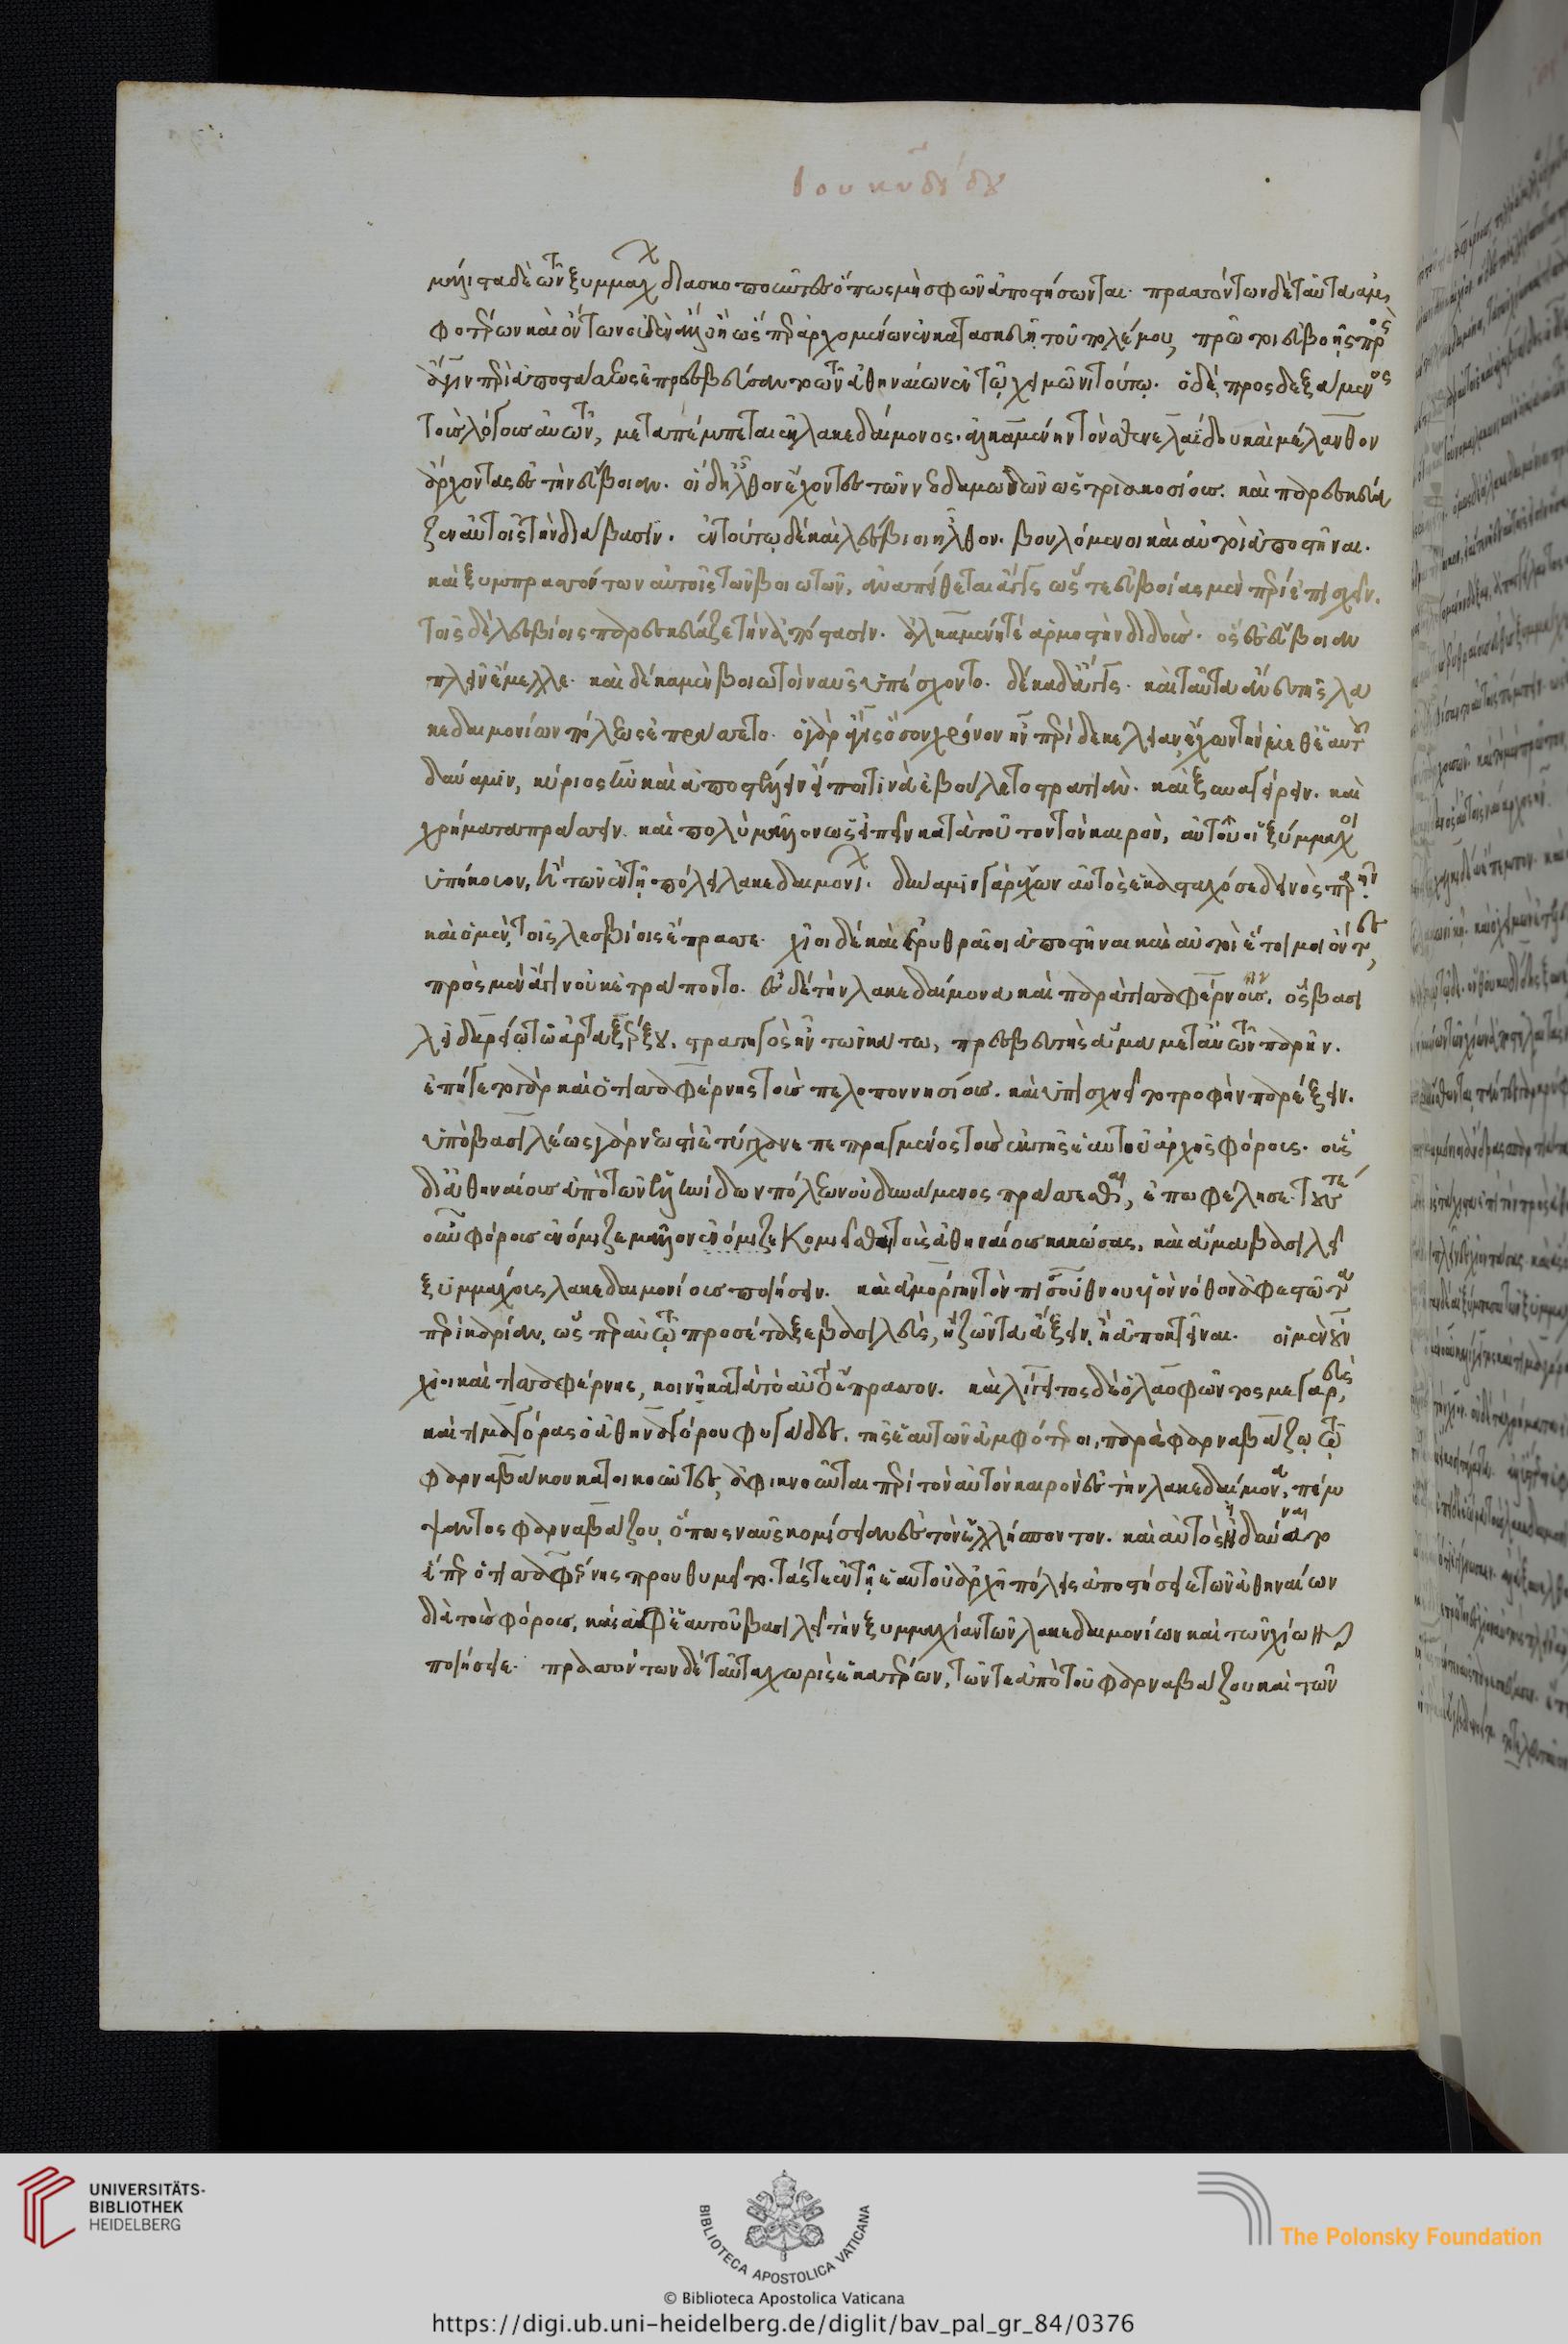 Θουκυδίδου
μάλιστα δὲ τῶν ξυμμάχ διασκοποῦντες ὅπως μὴ σφῶν ἀποστήσωνται. πρασσόντων δὲ ταῦτα ἀμ
φοτέρων καὶ ὄντων οὐδὲν ἄλλο ἢ ὥσπερ ἀρχομένων ἐν κατασκευῇ τοῦ πολέμου, πρῶτοι εὐβοῆς πρὸς
ἄγιν περὶ ἀποστάσεως ἐπρεσβεύσαντο τῶν ἀθηναίων ἐν τῷ χειμῶνι τούτῳ. ὁ δὲ προσδεξάμενος
τοὺς λόγους αὐτῶν, μεταπέμπεται ἐκ λακεδαίμονος. ἀλκαμένην τὸν σθενελαΐδου καὶ μέλανθον
ἄρχοντας ἐς τὴν εὔβοιαν. οἱ δ' ἦλθον ἔχοντες τῶν νεοδαμωδῶν ὡς τριακοσίους. καὶ παρεσκεύα
ζεν αὐτοῖς τὴν διάβασιν. ἐν τούτῳ δὲ καὶ λέσβιοι ἦλθον. βουλόμενοι καὶ αὐτοὶ ἀποστῆναι.
καὶ ξυμπρασσόντων αὐτοῖς τῶν βοιωτῶν, ἀναπείθεται ἆγις ὥστε εὐβοίας μὲν πέρι ἐπισχεῖν.
τοῖς δὲ λεσβίοις παρεσκεύαζε τὴν ἀπόστασιν. ἀλκαμένην τε ἁρμοστὴν διδοὺς. ὃς ἐς εὔβοιαν
πλεῖν ἔμελλε. καὶ δέκα μὲν βοιωτοὶ ναῦς ὑπέσχοντο. δέκα δ' ἆγις. καὶ ταῦτα ἄνευ τῆς λα
κεδαιμονίων πόλεως ἐπράσσετο. ὁ γὰρ ἆγις ὅσον χρόνον ἦν περὶ δεκέλειαν ἔχων τὴν μεθ' ἑαυτοῦ
δύναμιν, κύριος ἦν καὶ ἀποστέλλειν εἴ ποι τινὰ ἐβούλετο στρατιὰν. καὶ ξυναγείρειν. καὶ
χρήματα πράσσειν. καὶ πολὺ μᾶλλον ὡς εἰπεῖν κατὰ τοῦτον τὸν καιρὸν, αὐτοῦ οἱ ξύμμαχοι
ὑπήκουον, ἢ τῶν ἐν τῇ πόλει λακεδαιμονίων. δύναμιν γὰρ ἔχων αὐτὸς ἑκασταχόσε δεινὸς παρῆν.
καὶ ὁ μὲν τοῖς λεσβίοις ἔπρασσε. χῖοι δὲ καὶ ἐρυθραῖοι ἀποστῆναι καὶ αὐτοὶ ἑτοῖμοι ὄντες,
πρὸς μὲν ἆγιν οὐκ ἐτράποντο. ἐς δὲ τὴν λακεδαίμονα καὶ παρὰ τισσαφέρνους, ὃς βασι
λεῖ δαρείῳ τῷ ἀρταξέρξου. στρατηγὸς ἦν τῶν κάτω, πρεσβευτὴς ἅμα μετ' αὐτῶν παρῆν.
ἐπήγετο γὰρ καὶ ὁ τισσαφέρνης τοὺς πελοποννησίους. καὶ ὑπισχνεῖτο τροφὴν παρέξειν.
ὑπὸ βασιλέως γὰρ νεωστὶ ἐτύγχανε πεπραγμένος τοὺς ἐκ τῆς ἑαυτοῦ ἀρχῆς φόρους. οὓς
δι' ἀθηναίους ἀπὸ τῶν ἑλληνίδων πόλεων οὐ δυνάμενος πράσσεσθαι, ἐπωφείλησε. τούς τε
οὖν φόρους ἐνόμιζε μᾶλλον ἐνόμιζε κομιεῖσθαι τοὺς ἀθηναίους κακώσας, καὶ ἅμα βασιλεῖ
ξυμμάχους λακεδαιμονίους ποιήσειν. καὶ ἀμόργην τὸν πισσούθνου υἱὸν νόθον ἀφεστῶτα
περὶ καρίαν, ὥσπερ αὐτῷ προσέταξε βασιλεὺς, ἢ ζῶντα ἄξειν, ἢ ἀποκτεῖναι. οἱ μὲν οὖν
χῖοι καὶ τισσαφέρνης, κοινῇ κατὰ τὸ αὐτὸ ἔπρασσον. καλλίγειτος δὲ ὁ λαοφῶντος μεγαρεὺς
καὶ τιμαγόρας ὁ ἀθηναγόρου φυγάδες. τῆς ἑαυτῶν ἀμφότεροι, παρὰ φαρναβάζῳ τῷ
φαρναβάκου κατοικοῦντες, ἀφικνοῦνται περὶ τὸν αὐτὸν καιρὸν ἐς τὴν λακεδαίμονα, πέμ
ψαντος φαρναβάζου, ὅπως ναῦς κομίσειαν ἐς τὸν ἑλλήσποντον. καὶ αὐτὸς εἰ δύναιτο
εἴπερ ὁ τισσαφέρνης προυθυμεῖτο. τάς τε ἐν τῇ ἑαυτοῦ ἀρχῇ πόλεις ἀποστήσειε τῶν ἀθηναίων
διὰ τοὺς φόρους, καὶ ἀφ' ἑαυτοῦ βασιλεῖ τὴν ξυμμαχίαν τῶν λακεδαιμονίων καὶ τῶν χίων
ποιήσειε. πρασσόντων δὲ ταῦτα χωρὶς ἑκατέρων, τῶν τε ἀπὸ τοῦ φαρναβάζου καὶ τῶν
UNIVERSITÄTS-
BIBLIOTHEK
HEIDELBERG
BIBLIOTECA APOSTOLICA VATICANA
The Polonsky Foundation
© Biblioteca Apostolica Vaticana
https://digi.ub.uni-heidelberg.de/diglit/bav_pal_gr_84/0376